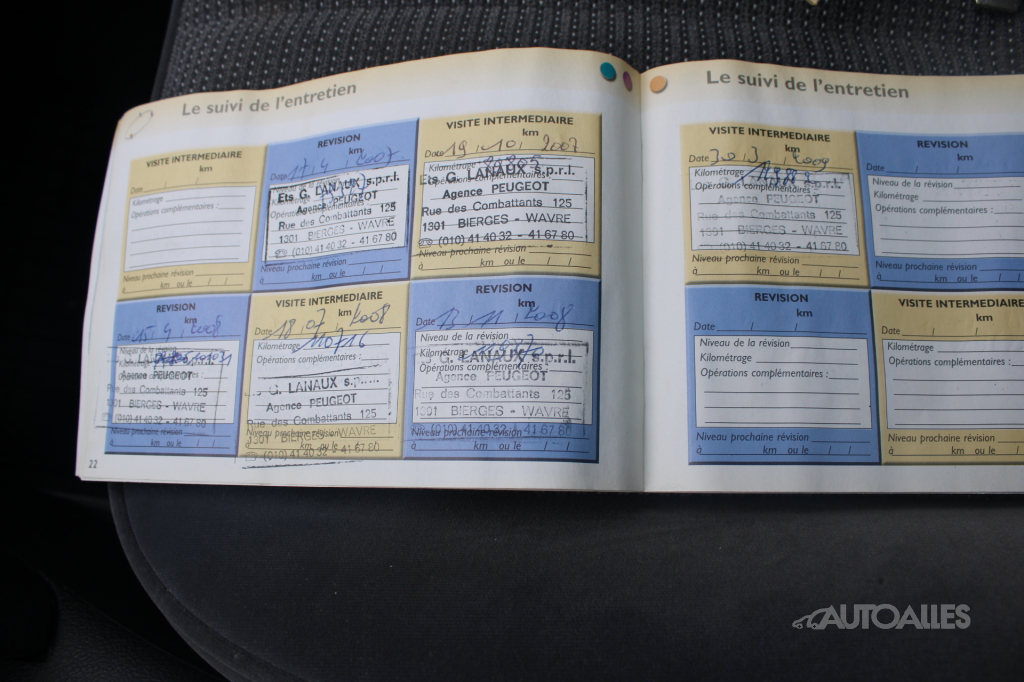 Le suivi de l'entretien
VISITE INTERMEDIAIRE
km
Date / /
Kilométrage
Opérations complémentaires :
Niveau prochaine révision
à km ou le / /
REVISION
km
Date 17, 4, 2007
Ets G. LANAUX s.p.r.l.
Agence PEUGEOT
Rue des Combattants 125
1301 BIERGES - WAVRE
(010) 41 40 32 - 41 67 80
Niveau prochaine révision
à km ou le / /
VISITE INTERMEDIAIRE
km
Date 19, 10, 2007
Kilométrage
Ets G. LANAUX s.p.r.l.
Agence PEUGEOT
Rue des Combattants 125
1301 BIERGES - WAVRE
(010) 41 40 32 - 41 67 80
Niveau prochaine révision
à km ou le / /
REVISION
km
Date 15, 4, 2008
Niveau de la révision
LANAUX
Agence PEUGEOT
Rue des Combattants 125
1301 BIERGES - WAVRE
(010) 41 40 32 - 41 67 80
à km ou le / /
VISITE INTERMEDIAIRE
km
Date 18, 07, 2008
Kilométrage 110716
Opérations complémentaires :
G. LANAUX s.p.
Agence PEUGEOT
Rue des Combattants 125
1301 BIERGES - WAVRE
Niveau prochaine révision
(010) 41 40 32 - 41 67 80
à km ou le / /
REVISION
km
Date 13, 11, 2008
Niveau de la révision
Kilométrage
G. LANAUX s.p.r.l.
Opérations complémentaires :
Agence PEUGEOT
Rue des Combattants 125
1301 BIERGES - WAVRE
(010) 41 40 32 - 41 67 80
Niveau prochaine révision
à km ou le / /
22
Le suivi de l'entretien
VISITE INTERMEDIAIRE
km
Date 30, 3, 2009
Kilométrage
Opérations complémentaires :
s.p.r.l.
Agence PEUGEOT
Rue des Combattants 125
1301 BIERGES - WAVRE
(010) 41 40 32 - 41 67 80
Niveau prochaine révision
à km ou le / /
REVISION
Date / /
Niveau de la révision
Kilométrage
Opérations complémentaires :
Niveau prochaine révision
à km ou le / /
REVISION
km
Date / /
Niveau de la révision
Kilométrage
Opérations complémentaires :
Niveau prochaine révision
à km ou le / /
VISITE INTERMEDIAIRE
km
Date / /
Kilométrage
Opérations complémentaires :
Niveau prochaine révision
à km ou le /
AUTOALLES